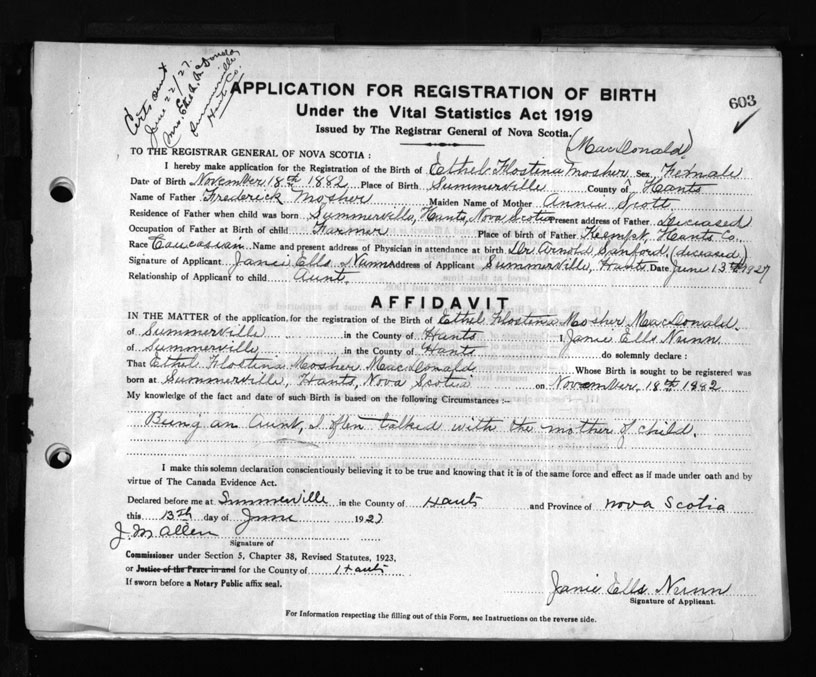 Certs out
June 22/27.
Mrs. Ethel A. McDonald
Summerville
Hants Co.
603
APPLICATION FOR REGISTRATION OF BIRTH
Under the Vital Statistics Act 1919
Issued by The Registrar General of Nova Scotia.
(MacDonald)
TO THE REGISTRAR GENERAL OF NOVA SCOTIA :
I hereby make application for the Registration of the Birth of Ethel Flostena Mosher Sex, Female
Date of Birth November 18th 1882 Place of Birth Summerville County of Hants
Name of Father Frederick Mosher Maiden Name of Mother Annie Scott.
Residence of Father when child was born Summerville, Hants, Nova Scotia Present address of Father deceased
Occupation of Father at Birth of child Farmer Place of birth of Father Kempt, Hants Co.
Race Caucasian Name and present address of Physician in attendance at birth Dr Arnold Sanford, (deceased)
Signature of Applicant Janie Ells Nunn Address of Applicant Summerville, Hants Date June 13th 1927
Relationship of Applicant to child Aunt.
AFFIDAVIT
IN THE MATTER of the application, for the registration of the Birth of Ethel Flostena Mosher MacDonald.
of Summerville in the County of Hants I, Janie Ells Nunn
of Summerville in the County of Hants do solemnly declare :
That Ethel Flostena Mosher MacDonald Whose Birth is sought to be registered was
born at Summerville, Hants, Nova Scotia on November 18th 1882
My knowledge of the fact and date of such Birth is based on the following Circumstances :—
Being an Aunt, I often talked with the mother of child.
I make this solemn declaration conscientiously believing it to be true and knowing that it is of the same force and effect as if made under oath and by
virtue of The Canada Evidence Act.
Declared before me at Summerville in the County of Hants and Province of Nova Scotia
this 13th day of June 1927
J. M Allen
Signature of
Commissioner under Section 5, Chapter 38, Revised Statutes, 1923,
or Justice of the Peace in and for the County of Hants
If sworn before a Notary Public affix seal.
Janie Ells Nunn
Signature of Applicant.
For Information respecting the filling out of this Form, see Instructions on the reverse side.